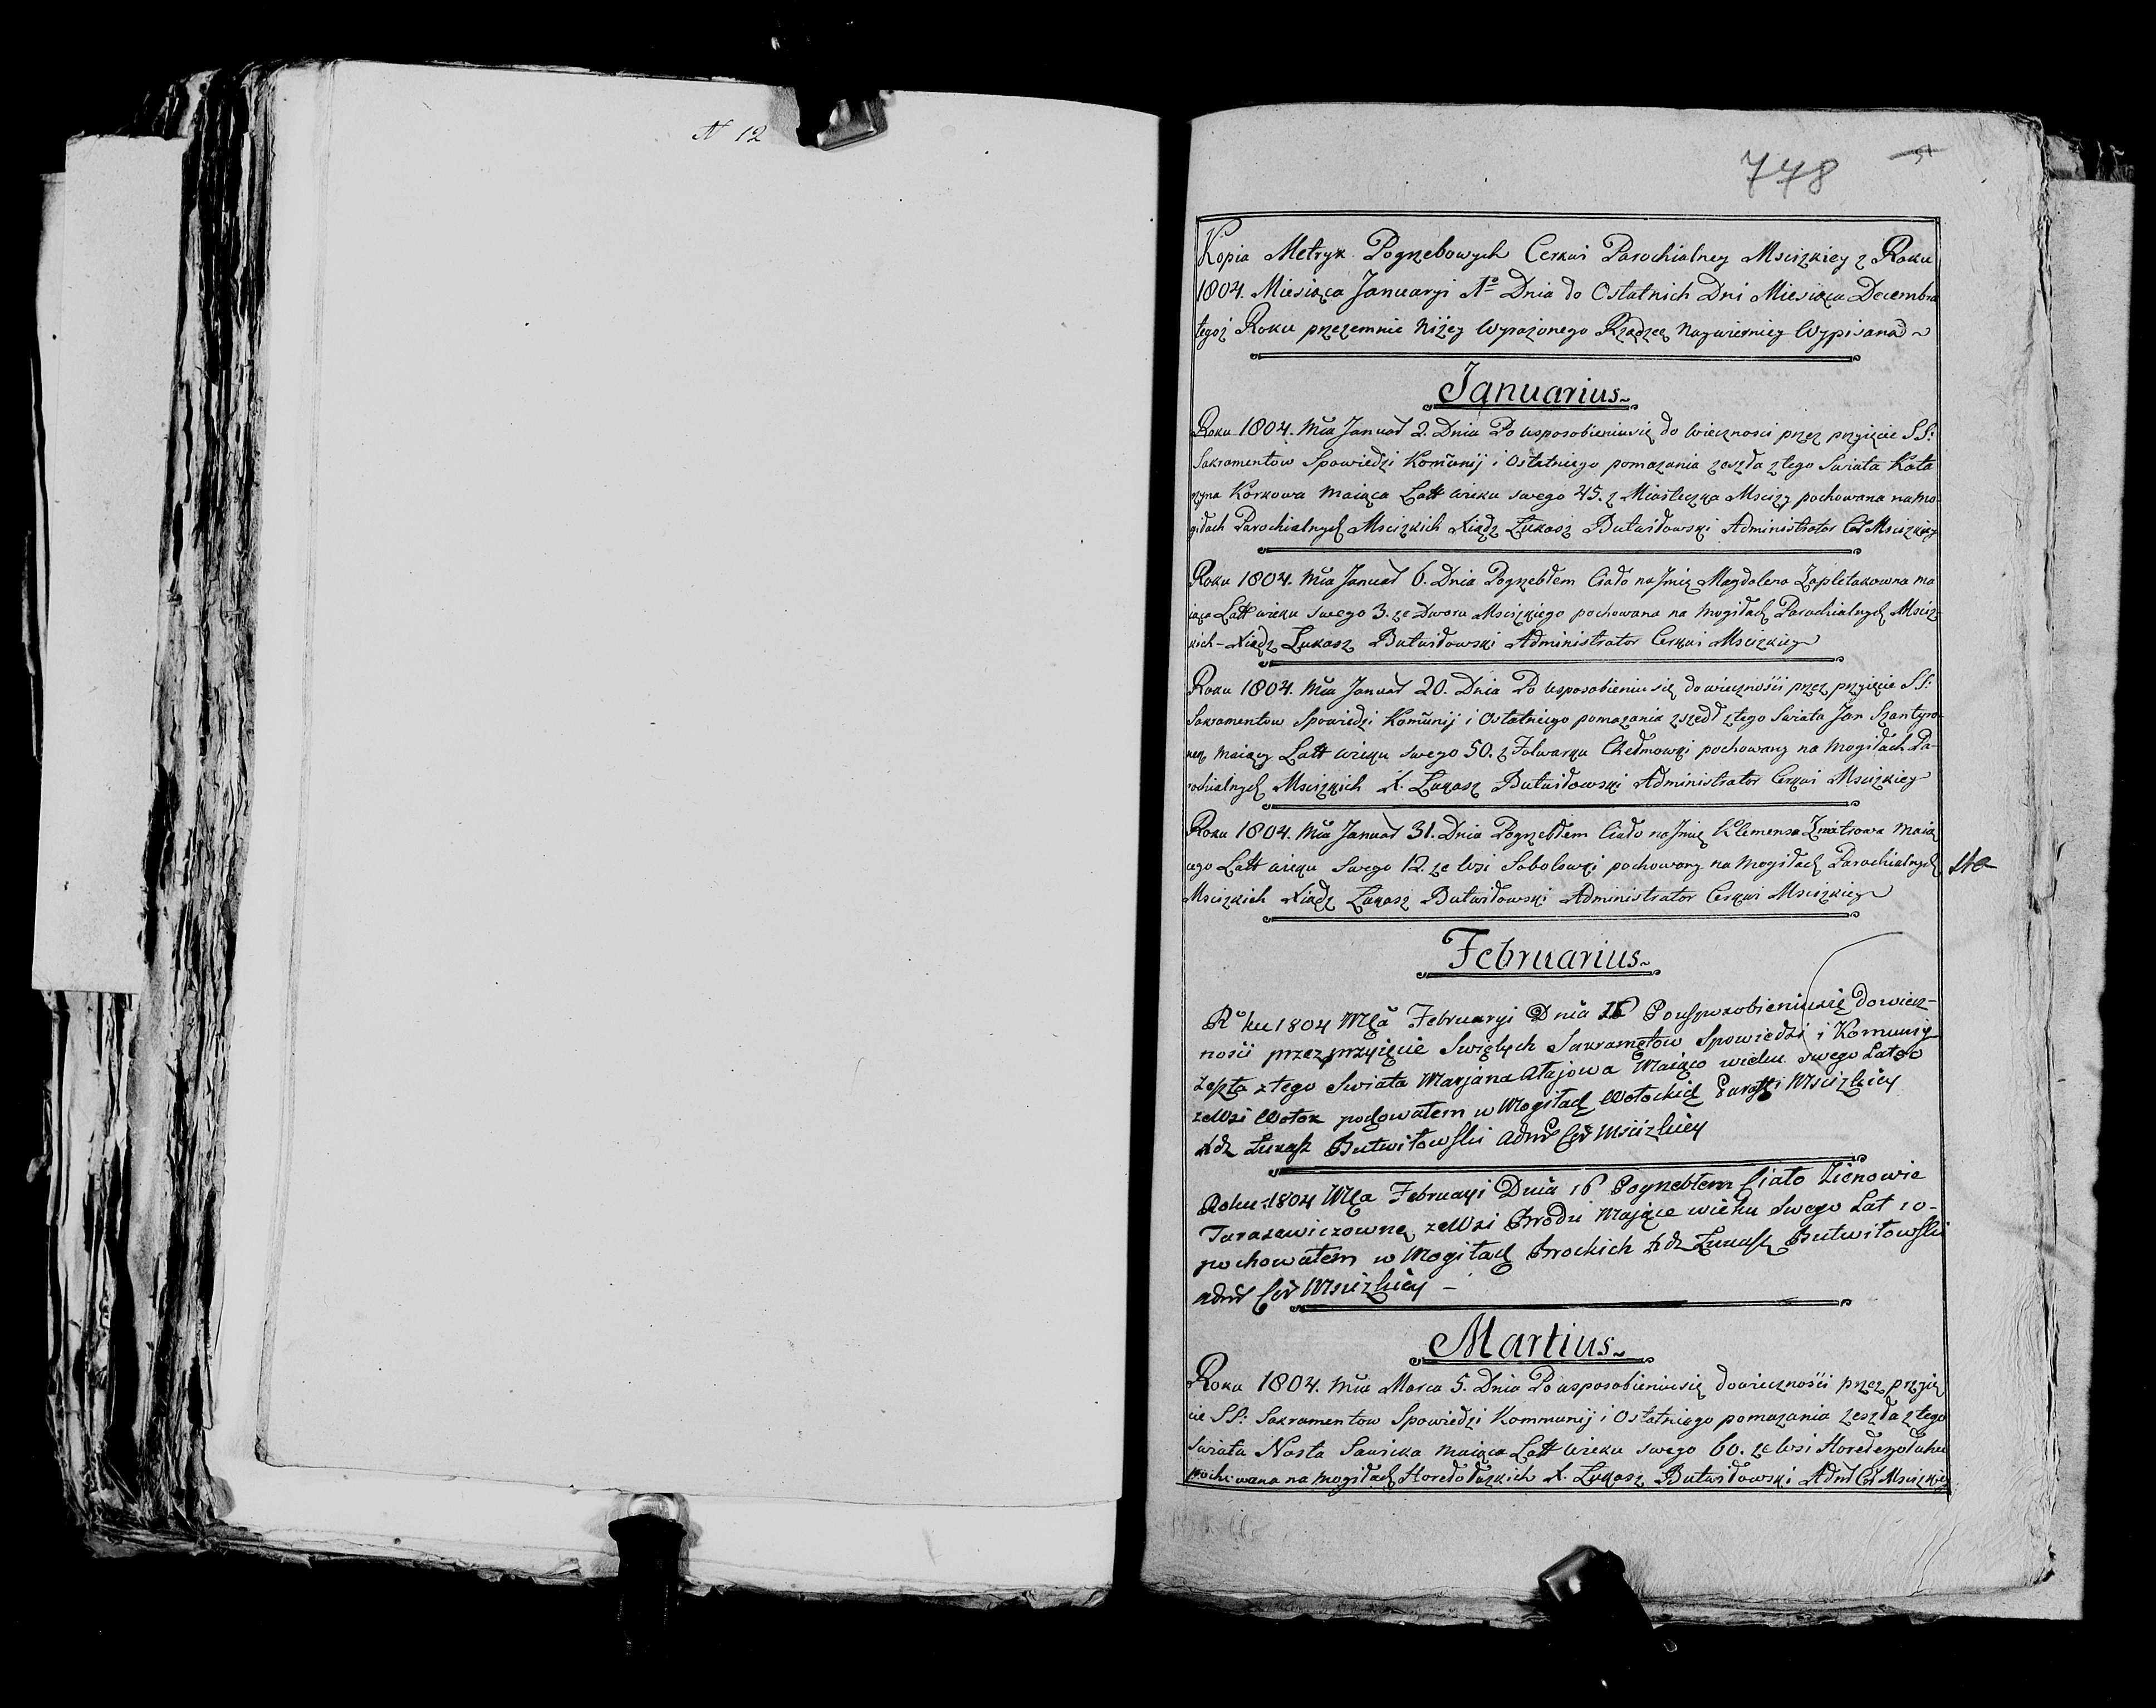 N 12
778
Kopia Metryk Pogrzebowych Cerkwi Parochialney Mscizkiey z Roku
1804. Miesiąca Januaryi 1º Dnia do Ostatnich Dni Miesiąca Decembra
tegoż Roku przezemnie niżey Wyrażonego Rządzcę naywierniey Wypisana
Januarius
Roku 1804. Mca Januar 2. Dnia Po usposobieniu się do wiecznosci przez przyięcie SS:
Sakramentow Spowiedzi Komunij i Ostatniego pomazania zeszła z tego Swiata Kata
rzyna Korkowa maiąca Latt wieku swego 45. z Miasteczka Mscizy pochowana na mo
giłach Parochialnych Mscizkich Xiądz Łukasz Butwiłowski Administrator Cer Mscizkiey
Roku 1804. Mca Januar 6. Dnia Pogrzebłem Ciało na Jmię Magdalena Zapletakowna ma
iąca Latt wieku swego 3. ze Dworu Mscizkiego pochowana na mogiłach Parochialnych Msciz
kich - Xiądz Łukasz Butwiłowski Administrator Cerkwi Mscizkiey
Roku 1804. Mca Januar 20. Dnia Po usposobieniu się do wieczności przez przyięcie SS:
Sakramentow Spowiedzi Komunij i Ostatniego pomazania zszedł z tego Swiata Jan Szantyro
maiący Latt wieku swego 50. z Folwarku Chełmowki pochowany na Mogiłach Pa-
rochialnych Mscizkich X. Łukasz Butwiłowski Administrator Cerkwi Mscizkiey
Roku 1804. Mca Januar 31. Dnia Pogrzebłem Ciało na Jmię Klemensa Zmitrowa maią
cego Latt wieku Swego 12. ze Wsi Sobolewki pochowany na Mogiłach Parochialnych
Mscizkich Xiądz Łukasz Butwiłowski Administrator Cerkwi Mscizkiey
Februarius
Roku 1804 Mca Februaryi Dnia 16 Po usposobieniu się do wiecz-
nosci przez przyięcie Swiętych Sakramętow Spowiedzi i Komunij
Zeszła z tego Swiata Marjana Atajowa Maiąco wieku swego Lat
ze Wsi Wołok pochowałem w Mogiłach Wołockich Parafii Mscizkiey
Xdz Łukasz Butwiłowski Admr Cer Mscizkiey
Roku 1804 Mca Februaryi Dnia 16 Pogrzebłem Ciało Zienowie
Tarasewiczowne ze Wsi Brodu Maiące wieku Swego Lat 10-
pochowałem w Mogiłach Brockich Xdz Łukasz Butwiłowski
Admr Cer Mscizkiey -
Martius
Roku 1804. Mca Marca 5. Dnia Po usposobieniu się do wieczności przez przyię
cie SS: Sakramentow Spowiedzi Kommunij i Ostatniego pomazania zeszła z tego
Swiata Nasta Sawicka maiąca Latt wieku swego 60. ze Wsi Horedezołuhu
pochowana na mogiłach X. Łukasz Butwiłowski Admr Cer Mscizkiey